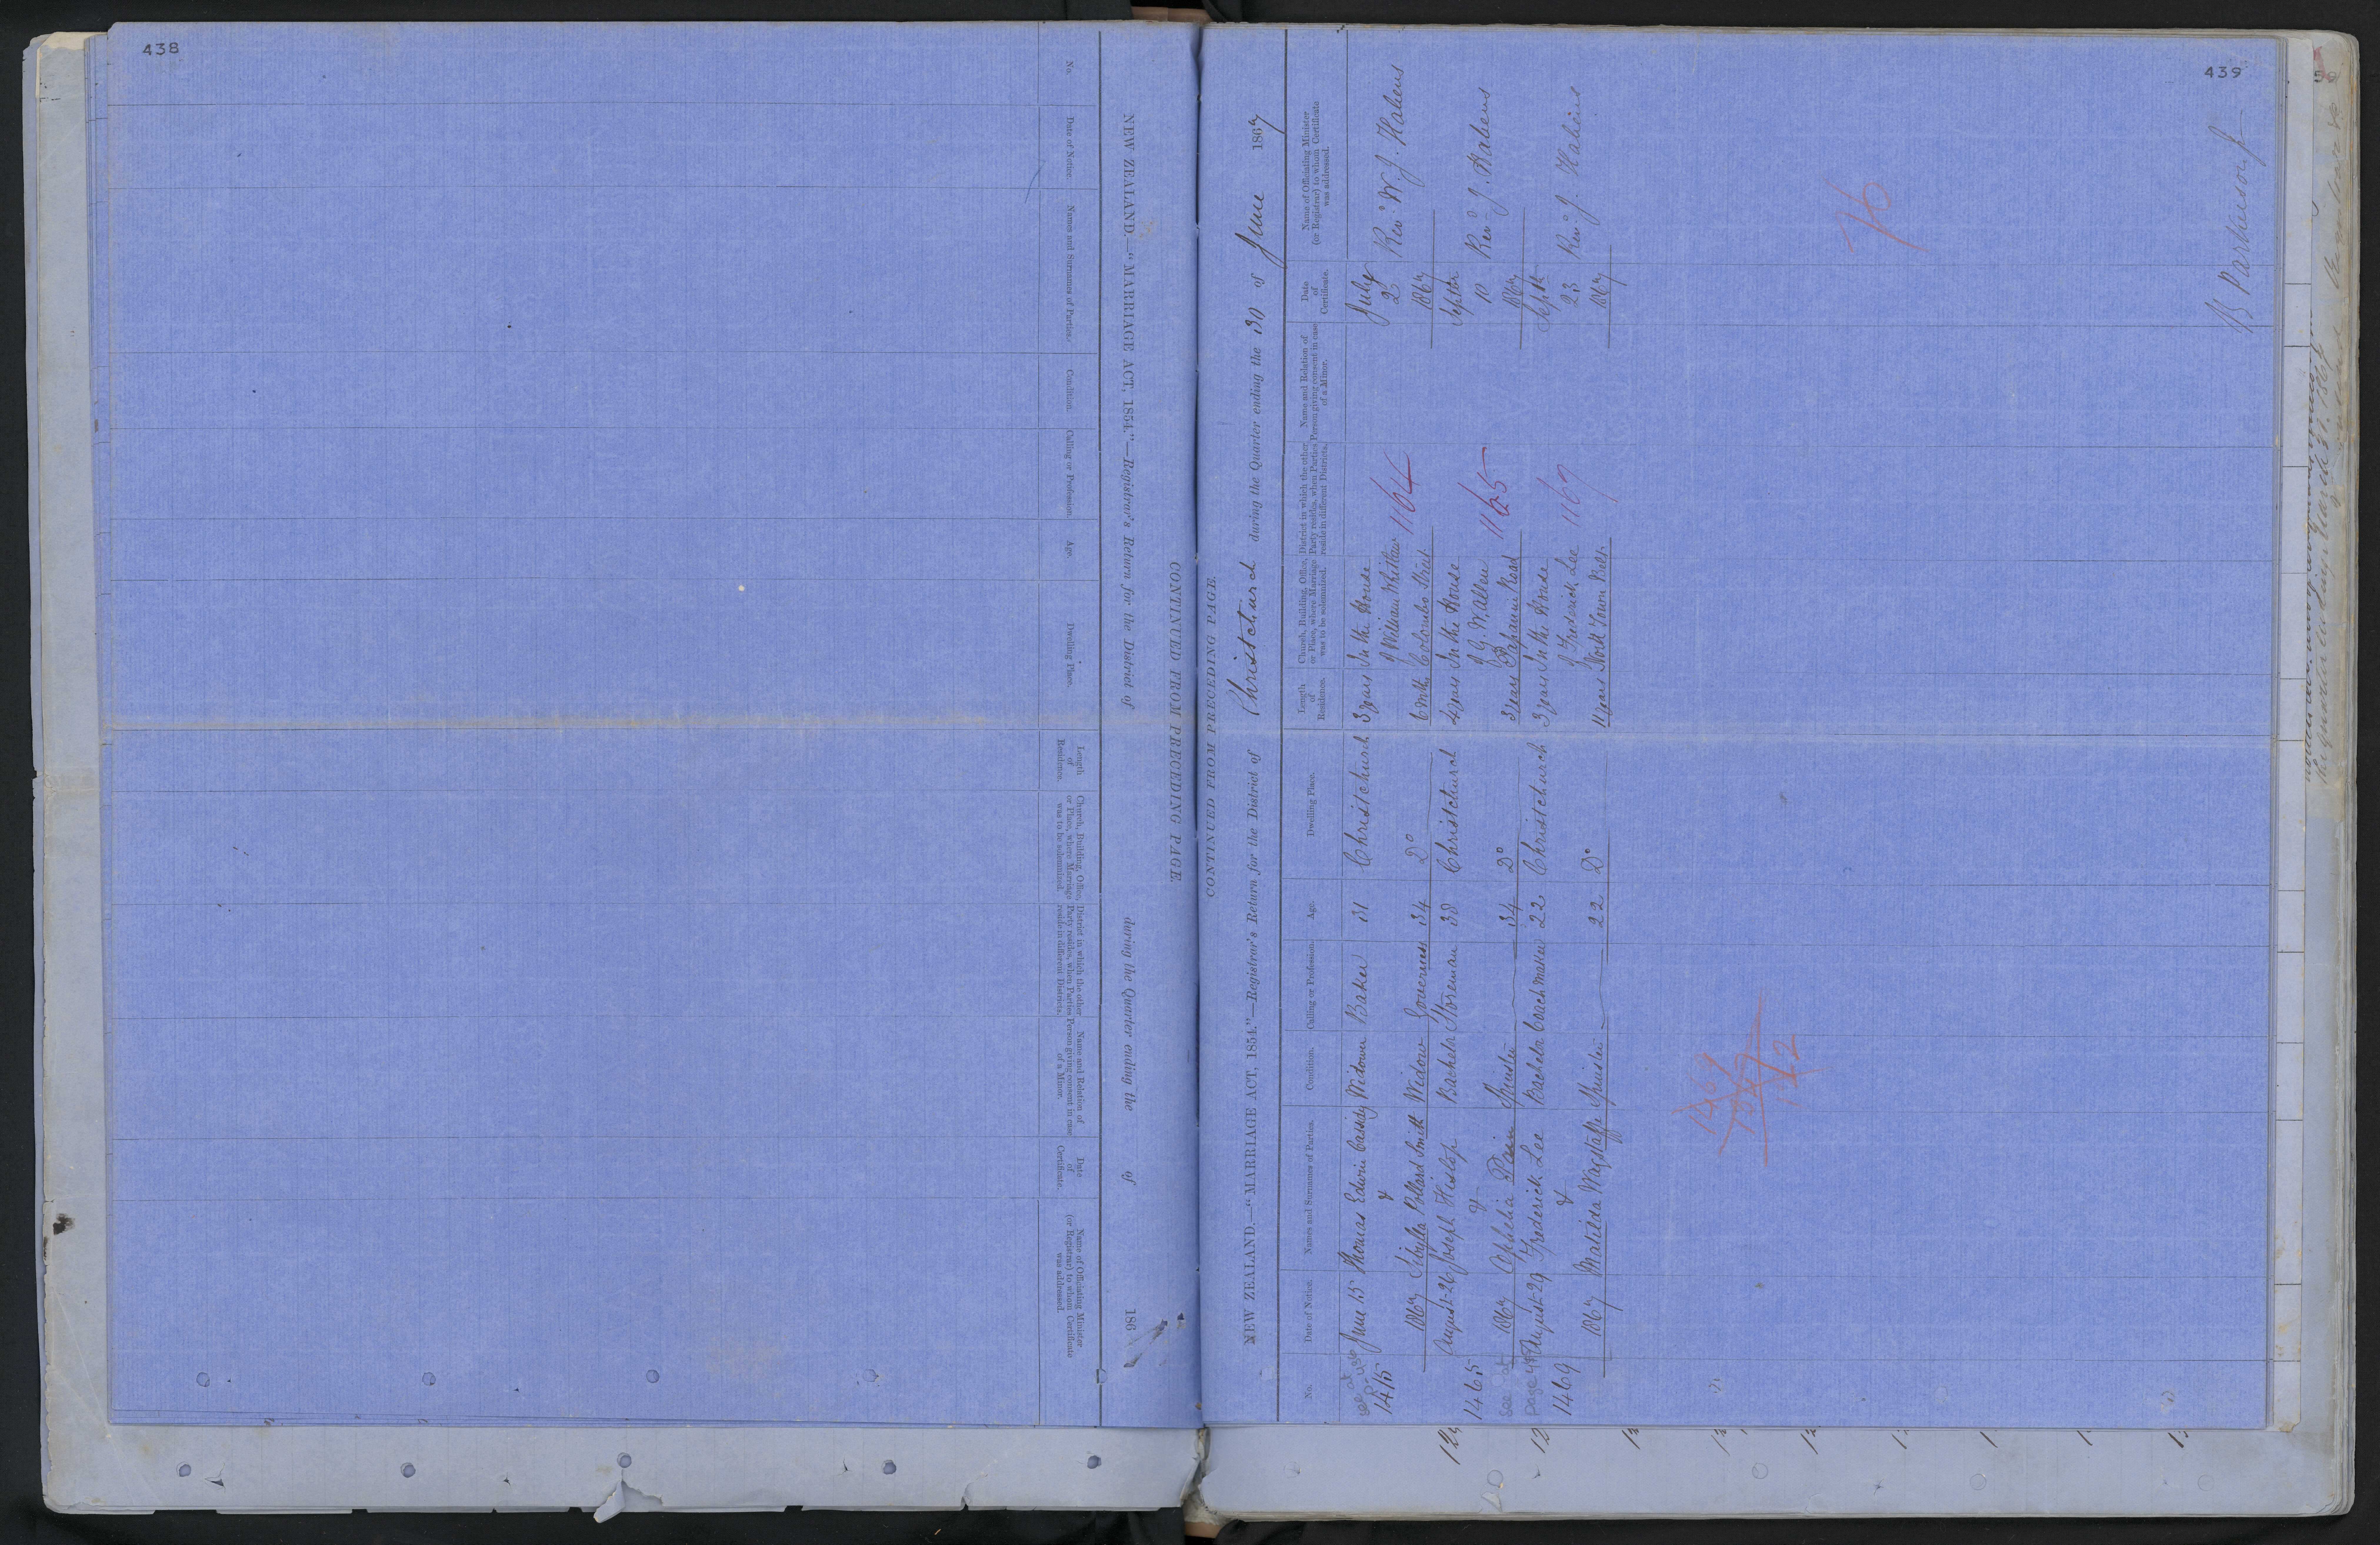 438
CONTINUED FROM PRECEDING PAGE.
NEW ZEALAND.—"MARRIAGE ACT, 1854."—Registrar's Return for the District of during the Quarter ending the of 186
No.
Date of Notice.
Names and Surnames of Parties.
Condition.
Calling or Profession.
Age.
Dwelling Place.
Length
of
Residence.
Church, Building, Office,
or Place, where Marriage
was to be solemnized.
District in which the other
Party resides, when Parties
reside in different Districts.
Name and Relation of
Person giving consent in case
of a Minor.
Date
of
Certificate.
Name of Officiating Minister
(or Registrar) to whom Certificate
was addressed.
439
CONTINUED FROM PRECEDING PAGE.
NEW ZEALAND.—"MARRIAGE ACT, 1854."—Registrar's Return for the District of Christchurch during the Quarter ending the 30 of June 1867
No.
Date of Notice.
Names and Surnames of Parties.
Condition.
Calling or Profession.
Age.
Dwelling Place.
Length
of
Residence.
Church, Building, Office,
or Place, where Marriage
was to be solemnized.
District in which the other
Party resides, when Parties
reside in different Districts.
Name and Relation of
Person giving consent in case
of a Minor.
Date
of
Certificate.
Name of Officiating Minister
(or Registrar) to whom Certificate
was addressed.
see at
June 15 Thomas Edwin Widower Baker 31 Christchurch 3 years In the House July
1415 & of William Whitelaw 1164 Revd W. J. Habens
1867 Sibylla Pollard Smith Widow Governess 34 Do 6 mths Colombo Street 1867
August 26 Joseph Hislop Bachelor Storeman 38 Christchurch 4 years In the House Septbr
1465 & of 1165 10 Revd J. Habens
see at 1867 Ophelia Spinster 34 Do 3 years Papanui Road 1867
page August 29 Frederick Lee Bachelor Coachmaker 22 Christchurch 3 years In the House Septr
1469 & of Frederick Lee 1167 23 Revd J. Habens
1867 Matilda Wagstaffe Spinster 22 Do 11 years North Town Belt 1867
76
1469
12
B Parkerson